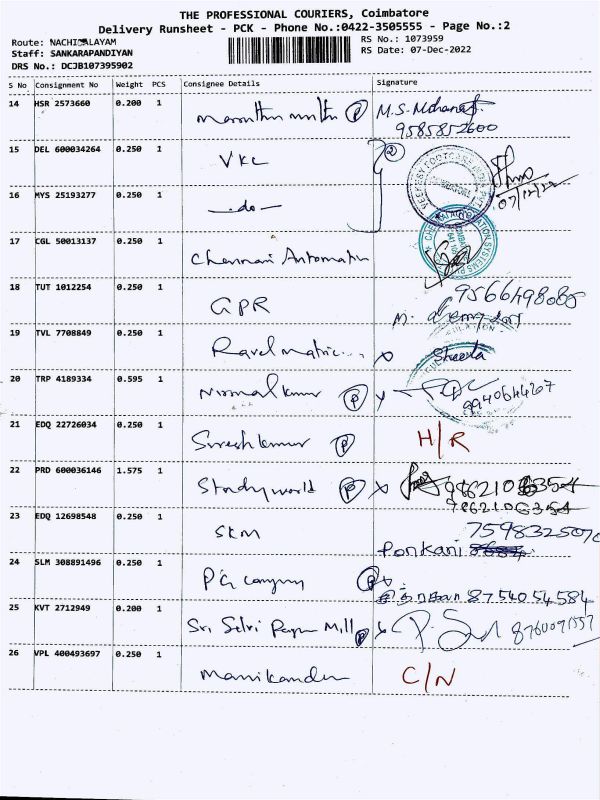 THE PROFESSIONAL COURIERS, Coimbatore
Delivery Runsheet - PCK - Phone No.:0422-3505555 - Page No.:2
Route: NACHIPALAYAM
RS No.: 1073959
Staff: SANKARAPANDIYAN
RS Date: 07-Dec-2022
DRS No.: DCJB107395902
S No Consignment No Weight PCS Consignee Details Signature
14 HSR 2573660 0.200 1 P M.S. Mohanraj
9585852600
15 DEL 600034264 0.250 1 VKC 2
16 MYS 25193277 0.250 1 -do- 07/12/22
17 CGL 50013137 0.250 1 Chennai Automation
18 TUT 1012254 0.250 1 GPR 9566498088
19 TVL 7708849 0.250 1 Ravel matric... x Sheela
20 TRP 4189334 0.595 1 Nirmal kumar P
9940644267
21 EDQ 22726034 0.250 1 Suresh kumar P H/R
22 PRD 600036146 1.575 1 Study world P x
9862106354
23 EDQ 12698548 0.250 1 SKM 7598325070
Ponkani
24 SLM 308891496 0.250 1 PG company P 8754054584
25 KVT 2712949 0.200 1 Sri Selvi Paper Mill P x 8760091557
26 VPL 400493697 0.250 1 Manikandan C/N